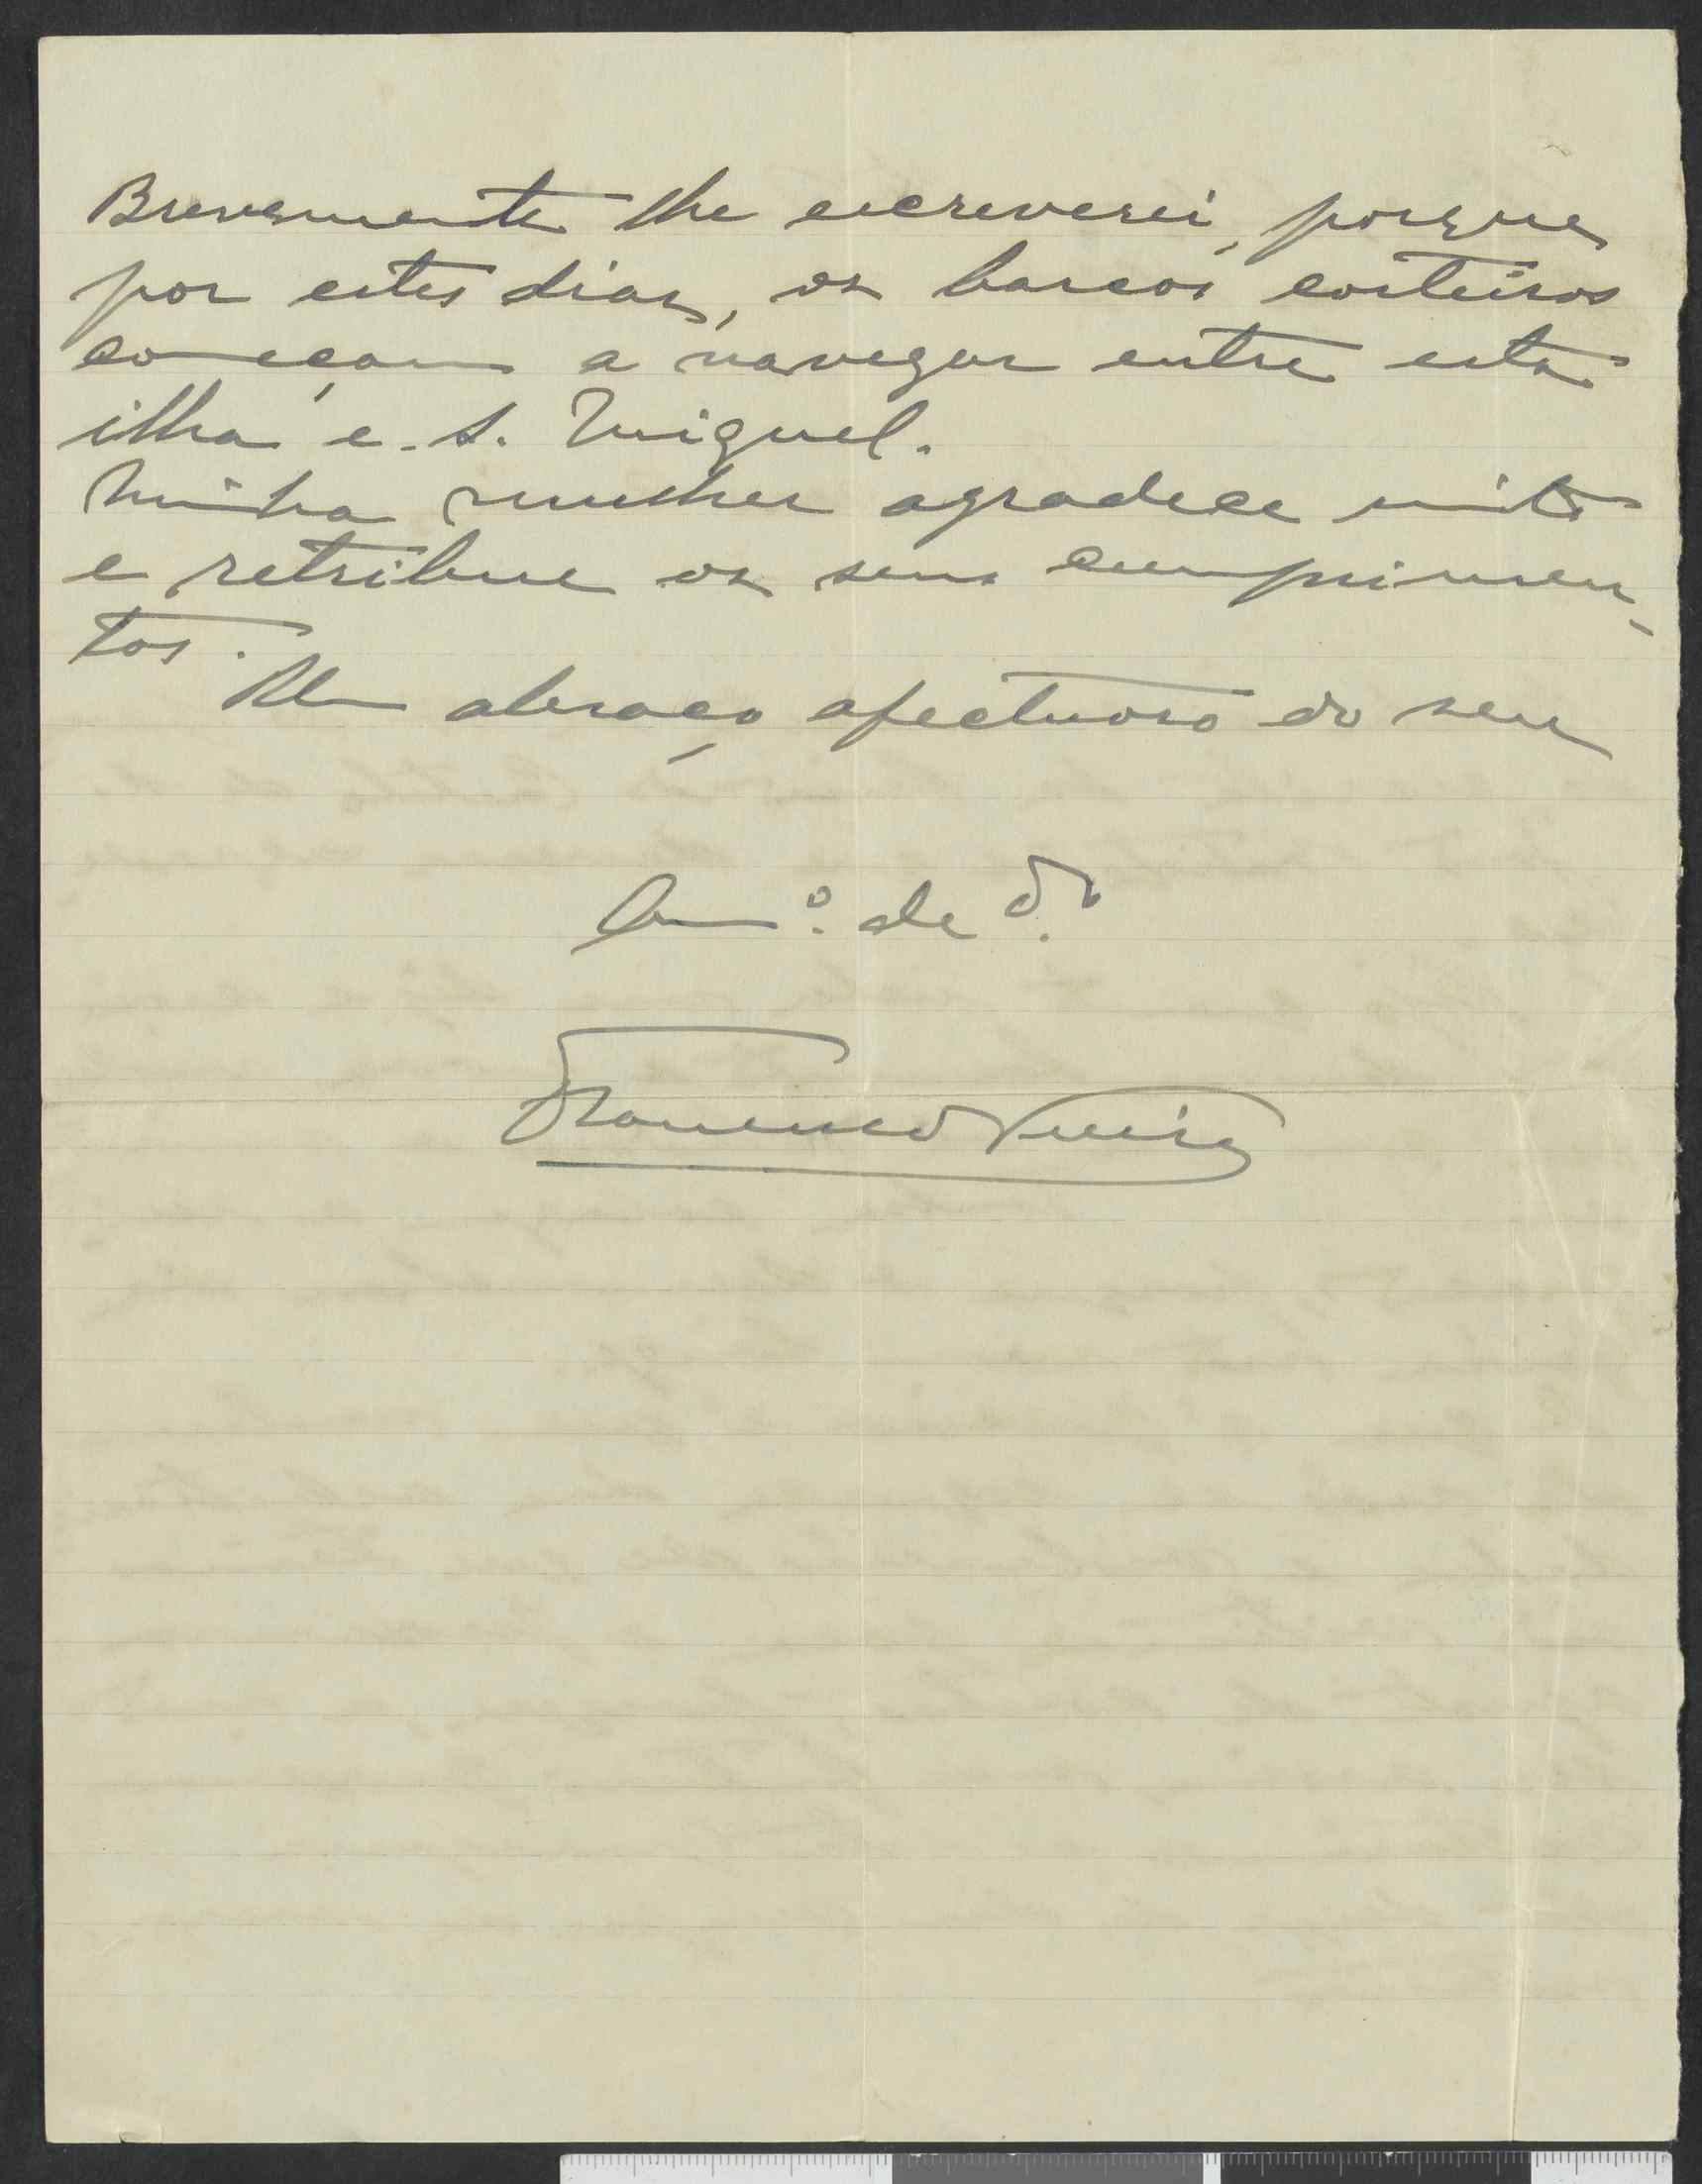 Brevemente lhe escreverei, porque
por estes dias, os barcos costeiros
começam a navegar entre esta
ilha e S. Miguel.
Minha mulher agradece mito
e retribue os seus cumprimen-
tos.
Um abraço afectuoso do seu
Am.º de
Francisco